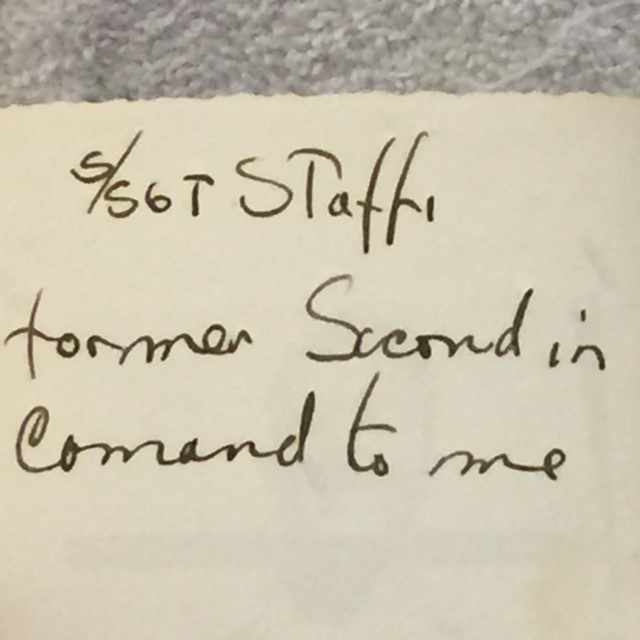 S/SGT STaffi
former Second in
Comand to me